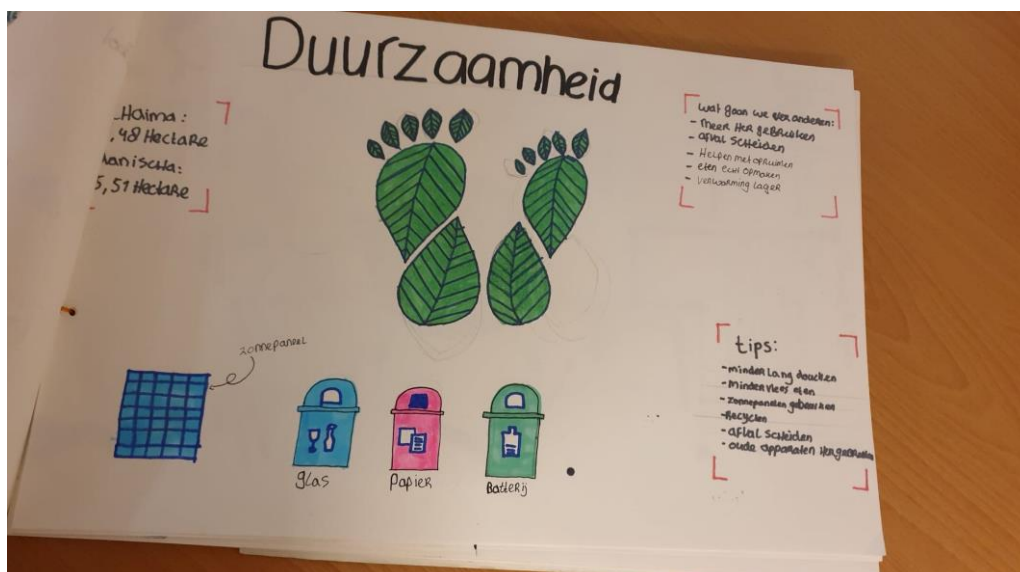 Duurzaamheid
Haima:
,48 Hectare
anischa:
5,51 Hectare
wat gaan we veranderen:
- meer Her gebruiken
- afval scheiden
- Helpen met opruimen
- eten echt opmaken
- verwarming lager
zonnepaneel
glas
papier
Batterij
tips:
- minder lang douchen
- minder vlees eten
- zonnepanelen gebruiken
- Recyclen
- afval scheiden
- oude apparaten Hergebruiken